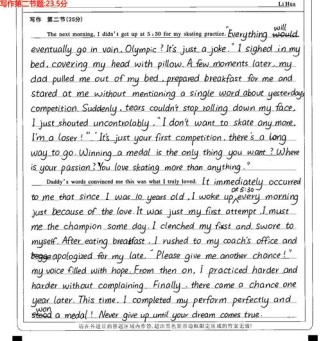 写作第二节题:23.5分
Li Hua
写作 第二节(25分)
The next morning, I didn't get up at 5:30 for my skating practice. "Everything will would
eventually go in vain. Olympic? It's just a joke." I sighed in my
bed, covering my head with pillow. A few moments later, my
dad pulled me out of my bed, prepared breakfast for me and
stared at me without mentioning a single word about yesterday
competition. Suddenly, tears couldn't stop rolling down my face.
I just shouted uncontrolably. "I don't want to skate any more.
I'm a loser!" "It's just your first competition, there's a long
way to go. Winning a medal is the only thing you want? Where
is your passion? You love skating more than anything."
Daddy's words convinced me this was what I truly loved. It immediately occurred
to me that since I was 10 years old, I woke up at 5:30 every morning
just because of the love. It was just my first attempt. I must
be the champion some day. I clenched my first and swore to
myself. After eating breakfast, I rushed to my coach's office and
apologized for my late. "Please give me another chance!"
my voice filled with hope. From then on, I practiced harder and
harder without complaining. Finally, there came a chance one
year later. This time, I completed my perform perfectly and
won a medal! Never give up until your dream comes true.
请在各题目的答题区域内作答，超出黑色矩形边框限定区域的答案无效!